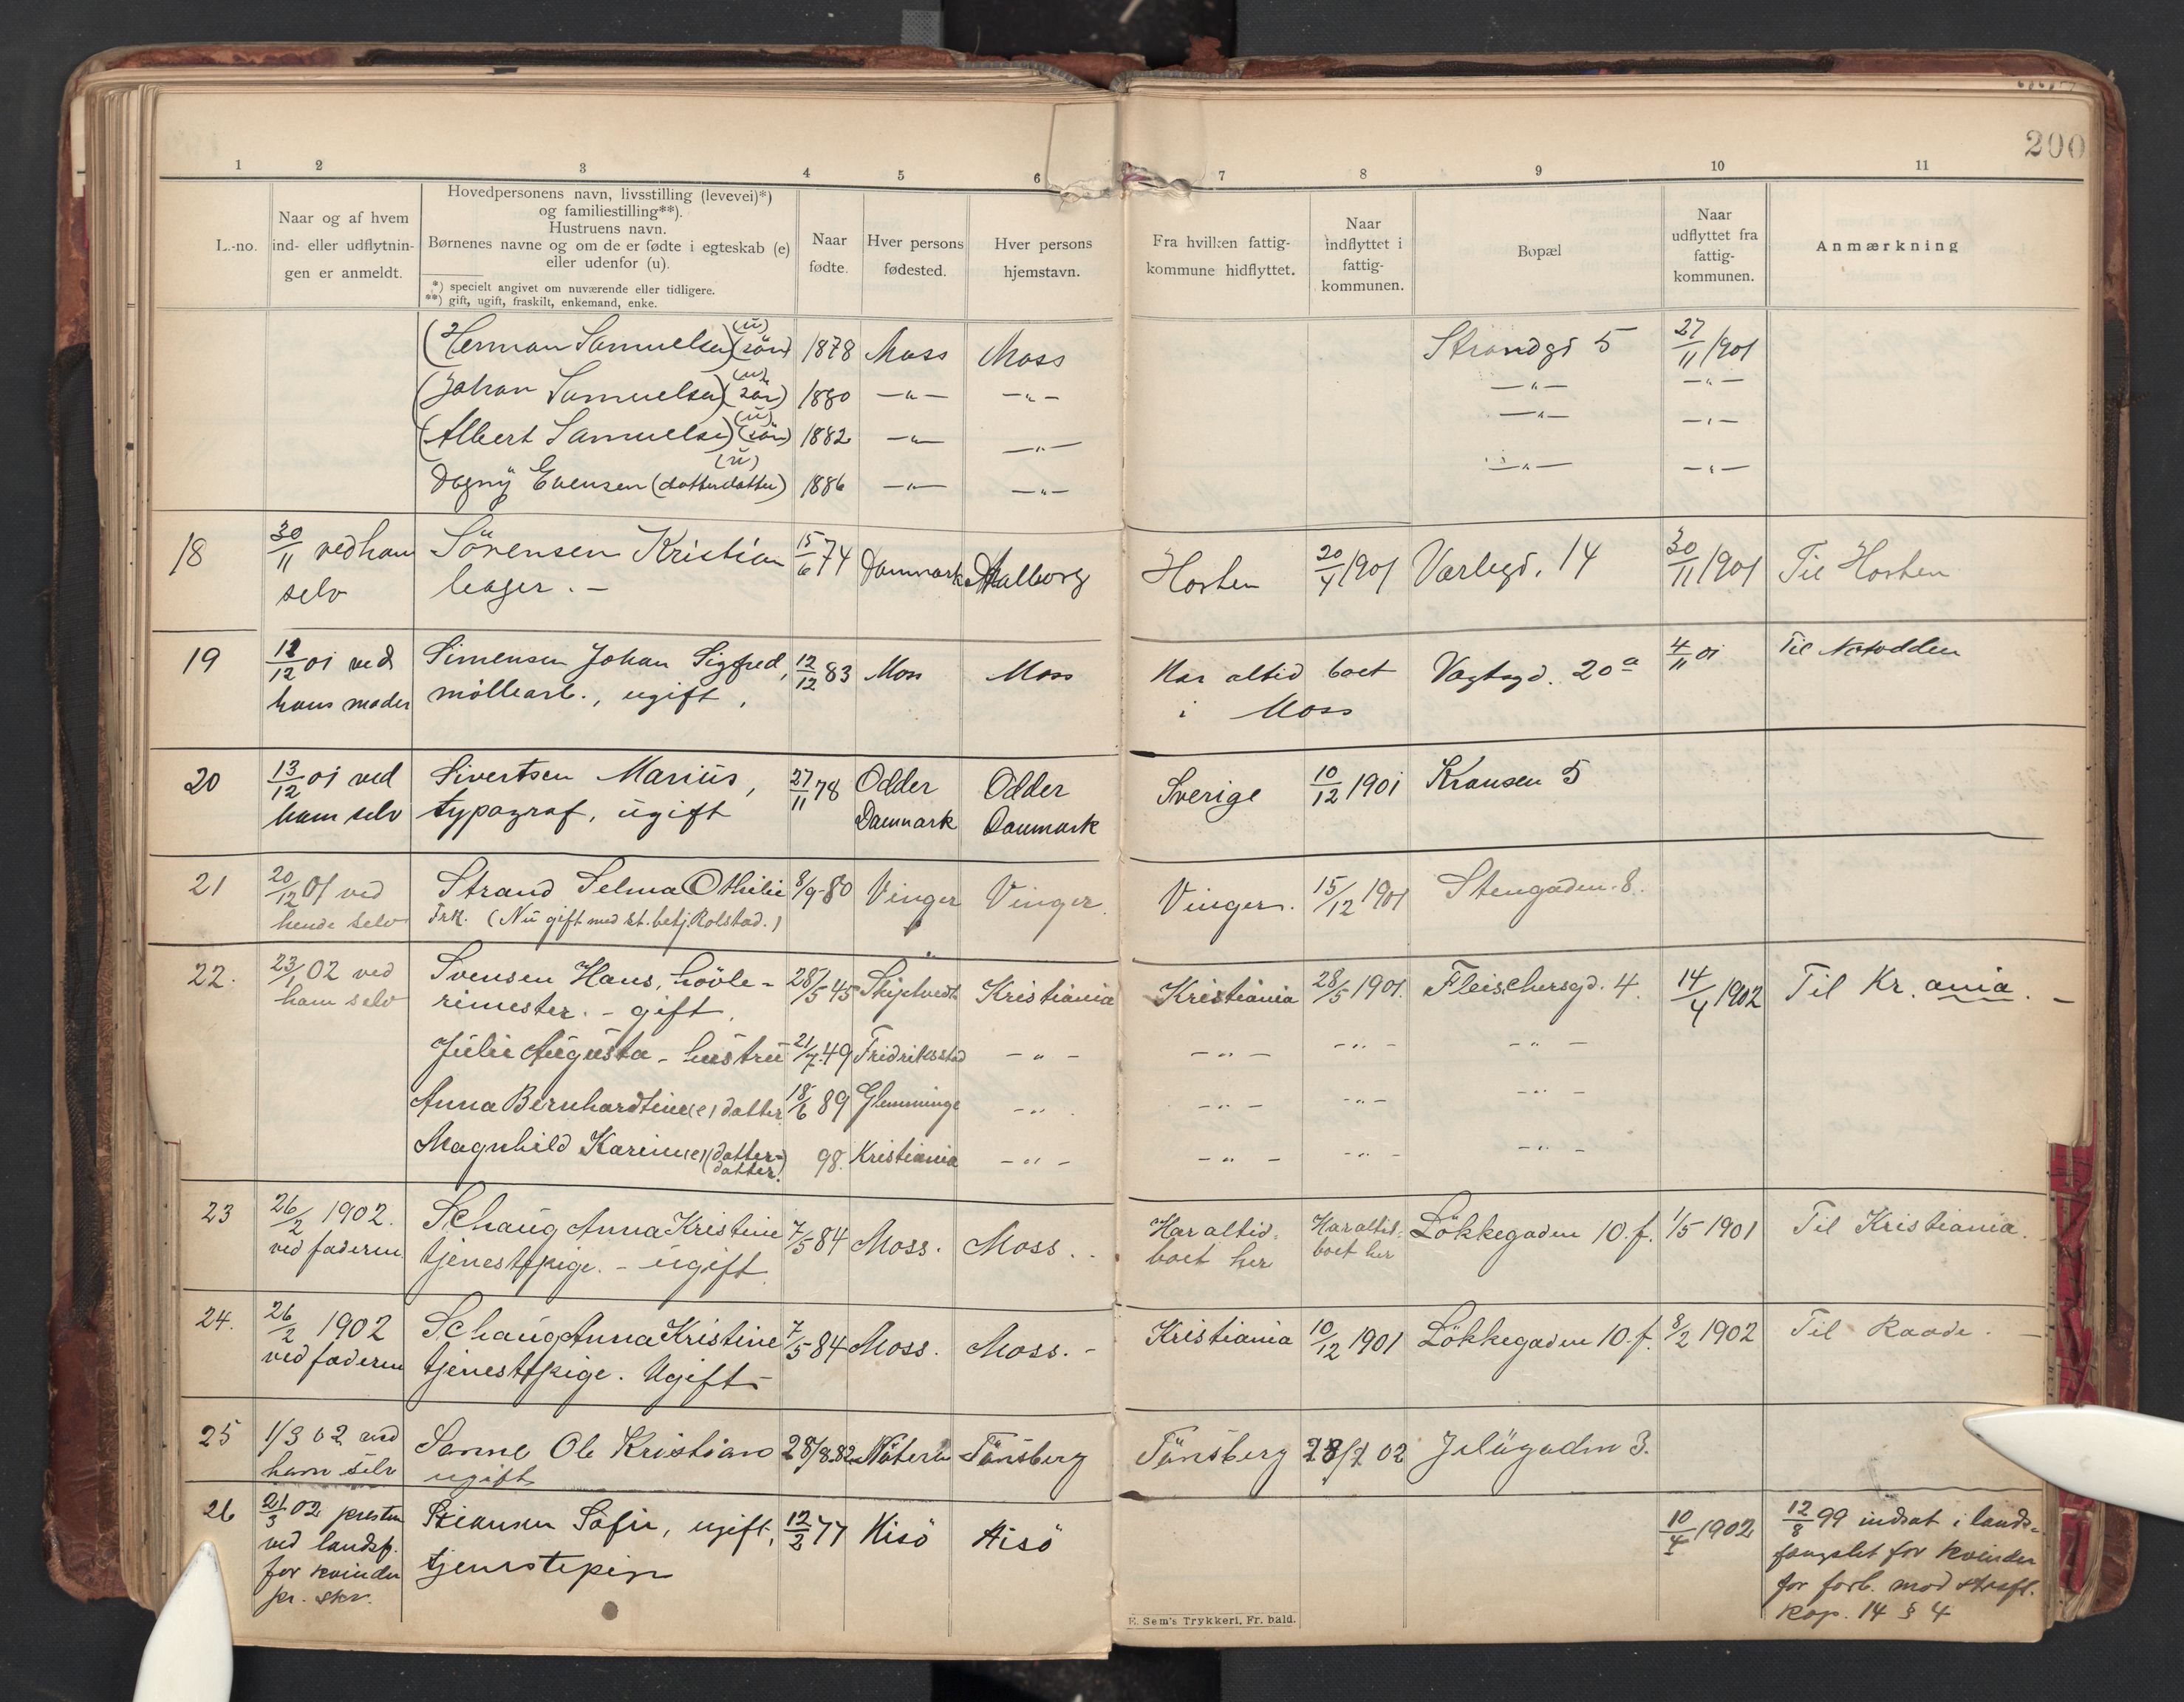 200
1 2 3 4 5 6 7 8 9 10 11
L.-no.
Naar og af hvem
ind- eller udflytnin-
gen er anmeldt.
Hovedpersonens navn, livsstilling (levevei)*)
og familiestilling**).
Hustruens navn.
Børnenes navne og om de er fødte i egteskab (e)
eller udenfor (u).
*) specielt angivet om nuværende eller tidligere.
**) gift, ugift, fraskilt, enkemand, enke.
Naar
fødte.
Hver persons
fødested.
Hver persons
hjemstavn.
Fra hvilken fattig-
kommune hidflyttet.
Naar
indflyttet i
fattig-
kommunen.
Bopæl
Naar
udflyttet fra
fattig-
kommunen.
Anmærkning
(Herman Samuelsen) (sön) (u) 1878 Moss Moss Strandgd 5 27/11 1901
(Johan Samuelsen) (sön) (u) 1880 —"— —"— —"— —"—
(Albert Samuelsen) (sön) (u) 1882 —"— —"— —"— —"—
Dagny Evensen (datterdatter) (u) 1886 —"— —"— —"— —"—
18 30/11 ved ham Sörensen Kristian 15/6 74 Danmark Aalborg Horten 20/4 1901 Varlegd. 14 30/11 1901 Til Horten
selv
19 12/12 01 ved Simensen Johan Sigfred, 12/12 83 Moss Moss Har altid boet Vogtsgd. 20a 4/11 01 Til Notodden
hans moder möllearb., ugift, i Moss
20 13/12 01 ved Sivertsen Marius, 27/11 78 Odder Odder Sverige 10/12 1901 Kransen 5
ham selv typograf, ugift Danmark Danmark
21 20/12 01 ved Strand Selma Othilie 8/9-80 Vinger Vinger. Vinger. 15/12 1901 Stengaden 8.
hende selv Frk. (Nu gift med st. betj. Rolstad.)
22. 23/1 02 ved Svensen Hans, hövle- 28/5 45 Skiptvedt Kristiania Kristiania 28/5 1901. Fleischersgd. 4. 14/4 1902 Til Kr.ania. —
ham selv rimester. - gift.
Julie Augusta - hustru 21/7 49 Fridriksstad — " — — " — — " — — " —
Anna Bernhardtine (e) datter 18/6 89 Glemminge — " — — " — — " — — " —
Magnhild Karine (e) (datter- 98. Kristiania — " — — " — — " — — " —
datter.)
23 26/2 1902. Schaug Anna Kristine 7/5 84 Moss. Moss. Har altid Har altid Lökkegaden 10.f. 1/5 1901 Til Kristiania.
ved faderen tjenestpige. - ugift. boet her boet her
24. 26/2 1902 Schaug Anna Kristine 7/5 84 Moss. Moss. - Kristiania 10/12 1901 Lökkegaden 10.f. 8/2 1902 Til Raade. —
ved faderen tjenestpige. Ugift -
25 1/3 02 ved Sanne Ole Kristian 28/8 82 Nöterö Tönsberg Tönsberg 28/2 02 Jelögaden 3.
ham selv ugift
26 21/3 02 presten Sofie, ugift, 12/2 77 Hisö Hisö 10/4 1902 12/8 99 indsat i lands-
ved landsf. tjenestepige fængslet for kvinder
for kvinder for forb. mod straffl.
pr. skr. kap. 14 § 4
E. Sem's Trykkeri, Fr. hald.